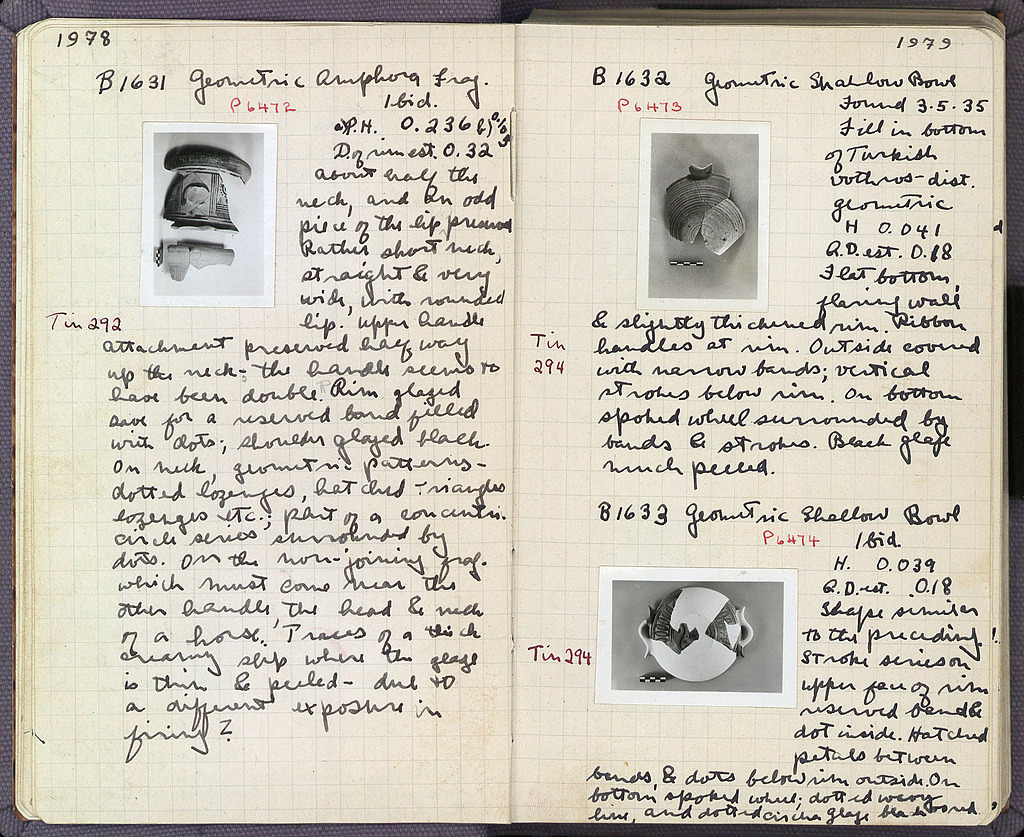 1978
B 1631 Geometric Amphora Frag.
P 6472 Ibid.
a) P.H. 0.236 b)
D. of rim est. 0.32
About half the
neck, and an odd
piece of the lip preserved
Rather short neck,
straight & very
wide, with rounded
lip. Upper handle
Tin 292
attachment preserved half way
up the neck; the handle seems to
have been double. Rim glazed
save for a reserved band filled
with dots; shoulder glazed black.
On neck, geometric patterns -
dotted lozenges, hatched triangles
lozenges etc.; part of a concentric
circle series surrounded by
dots. On the non-joining frag.
which must come near the
other handle the head & neck
of a horse. Traces of a thick
creamy slip where the glaze
is thin & peeled - due to
a different exposure in
firing?
1979
B 1632 Geometric Shallow Bowl
P 6473 Found 3.5.35
Fill in bottom
of Turkish
bothros - dist.
geometric
H 0.041
D. est. 0.18
Flat bottom,
flaring wall
& slightly thickened rim. Ribbon
Tin 294
handles at rim. Outside covered
with narrow bands; vertical
strokes below rim. On bottom
spoked wheel surrounded by
bands & strokes. Black glaze
much peeled.
B 1633 Geometric Shallow Bowl
P 6474 Ibid.
H. 0.039
D. est. 0.18
Shape similar
to the preceding.
Tin 294
Stroke series on
upper face of rim
reserved band &
dot inside. Hatched
petals between
bands, & dots below rim outside. On
bottom spoked wheel; dotted wavy
line, and dotted circles Glaze black